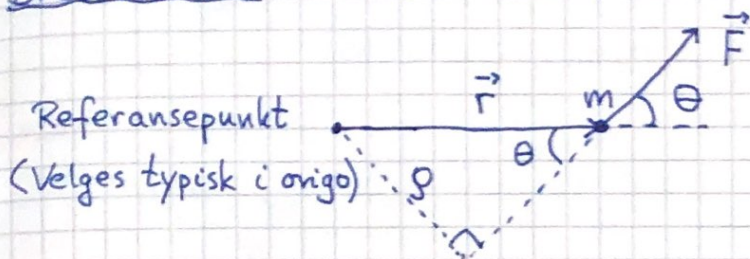 F⃗
r⃗
m
θ
Referansepunkt
θ
(Velges typisk i origo)
ρ